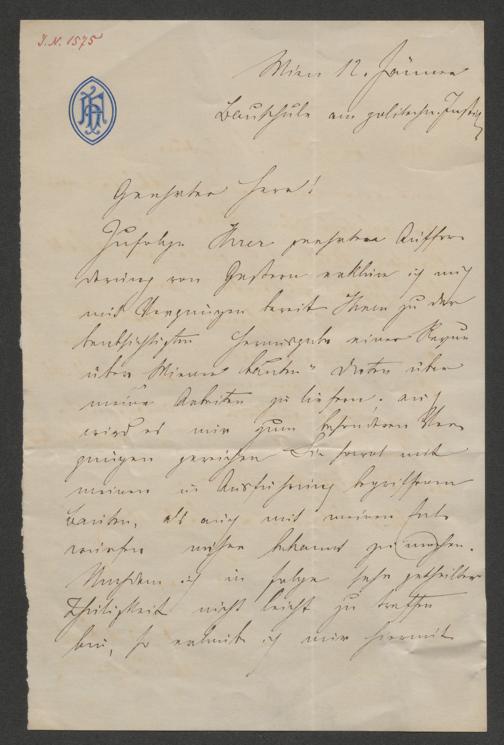 J.N. 1575
Wien 12. Jänner
Bauschule am politechn. Instit
Geehrter Herr!
Zufolge Ihrer geehrten Auffor-
derung von Gestern erkläre ich mich
mit Vergnügen bereit Ihnen zu der
beabsichtigten Herausgabe einer Revue
über Wiener Bauten" Daten über
meine Arbeiten zu liefern. auch
wird es mir zum besonderen Ver-
gnügen gereichen Sie sowol mit
meinen in Ausführung begriffenen
Bauten, als auch mit meinen Ent-
würfen näher bekannt zu machen.
Nachdem ich in folge sehr getheilter
Thätigkeit nicht leicht zu treffen
bin, so erlaube ich mir hiermit